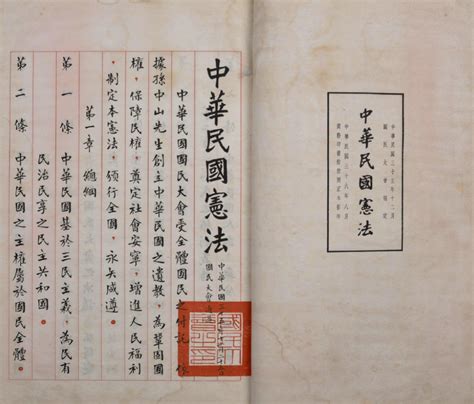 中華民國三十五年十二月
國民大會制定
中華民國憲法
中華民國三十六年八月
中華民國憲法
中華民國三十五年十二月
國民大會
中華民國國民大會受全體國民之付託,依
據孫中山先生創立中華民國之遺教,為鞏固國
權,保障民權,奠定社會安寧,增進人民福利
,制定本憲法,頒行全國,永矢咸遵。
第一章 總綱
第一條 中華民國基於三民主義,為民有
民治民享之民主共和國。
第二條 中華民國之主權屬於國民全體。